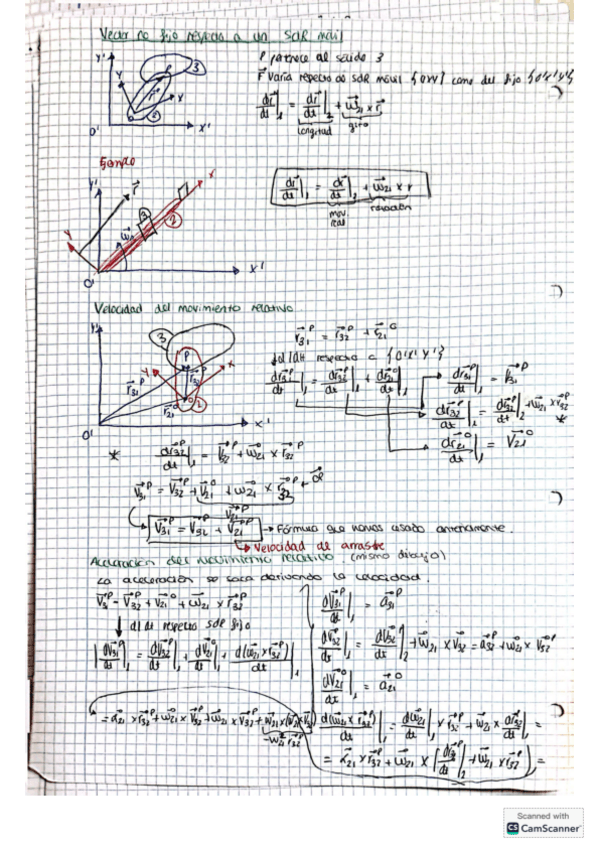 Vector no fijo respecto a un SdR móvil
P pertenece al sólido 3
r⃗ varía respecto al SdR móvil {oxy} como del fijo {o'x'y'}
dr⃗/dt|₁ = dr⃗/dt|₂ + ω⃗₂₁ × r⃗
longitud giro
Y' Y P 3 r⃗ X 2 O' X'
Ejemplo
Y' r⃗ X 3 2 Y ω⃗ O' X'
dr⃗/dt|₁ = dr⃗/dt|₂ + ω⃗₂₁ × r
rotación
Velocidad del movimiento relativo
Y' 3 P r⃗₃₁ᴾ r⃗₃₂ᴾ Y X r⃗₂₁ᴼ O 2 O' X'
r⃗₃₁ᴾ = r⃗₃₂ᴾ + r⃗₂₁ᴼ
respecto a {O'X'Y'}
dr⃗₃₁ᴾ/dt|₁ = dr⃗₃₂ᴾ/dt|₁ + dr⃗₂₁ᴼ/dt|₁
dr⃗₃₂ᴾ/dt|₁ = dr⃗₃₂ᴾ/dt|₂ + ω⃗₂₁ × r⃗₃₂ᴾ *
dr⃗₂₁ᴼ/dt|₁ = V⃗₂₁ᴼ
* dr⃗₃₂ᴾ/dt|₁ = V⃗₃₂ᴾ + ω⃗₂₁ × r⃗₃₂ᴾ
V⃗₃₁ᴾ = V⃗₃₂ᴾ + V⃗₂₁ᴼ + ω⃗₂₁ × r⃗₃₂ᴾ
V⃗₂₁ᴾ
V⃗₃₁ᴾ = V⃗₃₂ᴾ + V⃗₂₁ᴾ → Fórmula que hemos usado anteriormente.
→ Velocidad de arrastre
Aceleración del movimiento relativo. (mismo dibujo)
La aceleración se saca derivando la velocidad.
V⃗₃₁ᴾ = V⃗₃₂ᴾ + V⃗₂₁ᴼ + ω⃗₂₁ × r⃗₃₂ᴾ
d/dt respecto SdR fijo
dV⃗₃₁ᴾ/dt|₁ = dV⃗₃₂ᴾ/dt|₁ + dV⃗₂₁ᴼ/dt|₁ + d(ω⃗₂₁ × r⃗₃₂ᴾ)/dt|₁
dV⃗₃₁ᴾ/dt|₁ = a⃗₃₁ᴾ
dV⃗₃₂ᴾ/dt|₁ = dV⃗₃₂ᴾ/dt|₂ + ω⃗₂₁ × V⃗₃₂ᴾ = a⃗₃₂ᴾ + ω⃗₂₁ × V⃗₃₂ᴾ
dV⃗₂₁ᴼ/dt|₁ = a⃗₂₁ᴼ
d(ω⃗₂₁ × r⃗₃₂ᴾ)/dt|₁ = dω⃗₂₁/dt|₁ × r⃗₃₂ᴾ + ω⃗₂₁ × dr⃗₃₂ᴾ/dt|₁ =
= α⃗₂₁ × r⃗₃₂ᴾ + ω⃗₂₁ × [dr⃗₃₂ᴾ/dt|₂ + ω⃗₂₁ × r⃗₃₂ᴾ] =
Scanned with
CS CamScanner